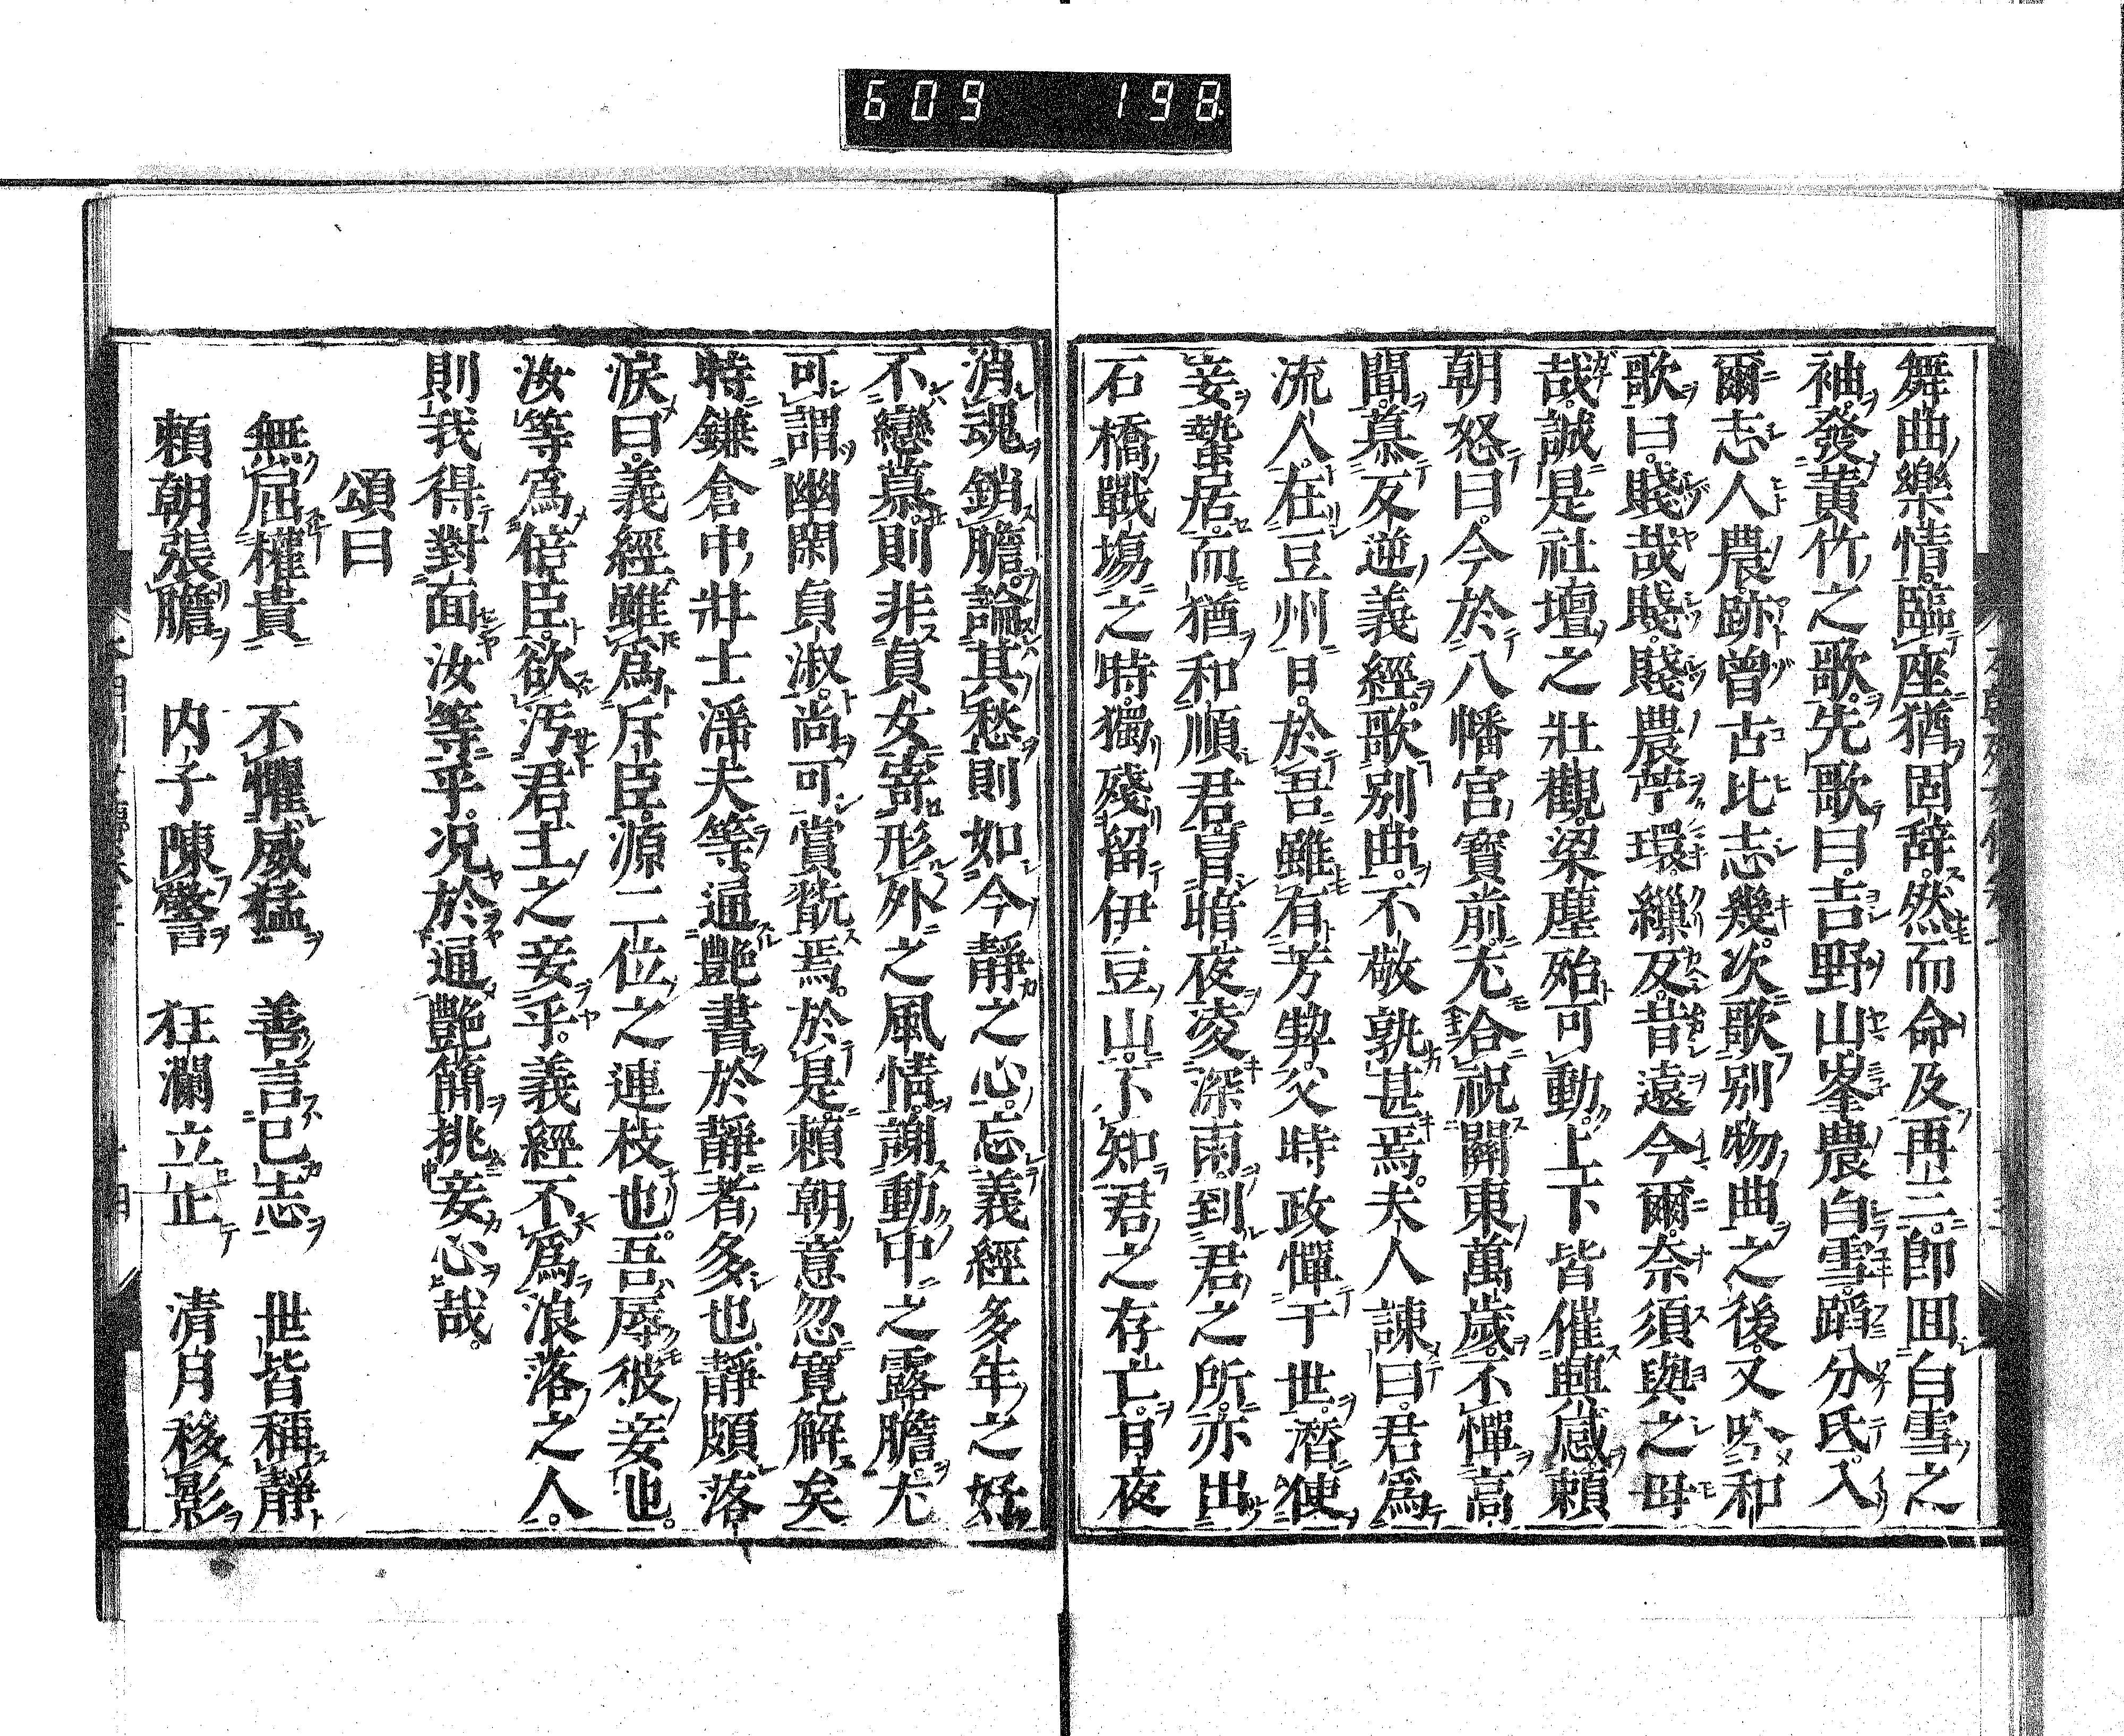 609 198
舞曲樂情臨座猶固辞然而命及再三即囬白雪之
袖發黃竹之歌先歌曰吉野山峯農白雪蹈分氐入
爾志人農跡曾古比志幾次歌別物曲之後又吟和
歌曰賤哉賤賤農苧環繰及昔遠今爾奈須與之毋
哉誠是社壇之壯觀梁塵殆可動上下皆催興感賴
朝怒曰今於八幡宮寶前尤合祝關東萬歲不憚高
聞慕反逆義經歌別曲不敬孰甚焉夫人諌曰君爲
流人在豆州日於吾雖有芳契父時政憚于世潛使
妾蟄居而猶和順君冒暗夜凌深雨到君之所亦出
石橋戰塲之時獨殘留伊豆山下知君之存亡日夜
消魂銷膽論其愁則如今靜之心忘義經多年之好
不戀慕則非貞女寄形外之風情謝動中之露膽尤
可謂幽閑貞淑尚可賞翫焉於是賴朝意忽寛解矣
時鎌倉中壯士滛夫等通艷書於靜者多也靜頗落
淚曰義經雖爲斥臣源二位之連枝也吾辱彼妾也
汝等爲倍臣欲汚君主之妾乎義經不爲浪落之人
則我得對面汝等乎况於通艷簡挑妾心哉
頌曰
無屈權貴 不懼威猛 善言己志 世皆稱靜
賴朝張膽 内子陳警 狂瀾立止 清月移影